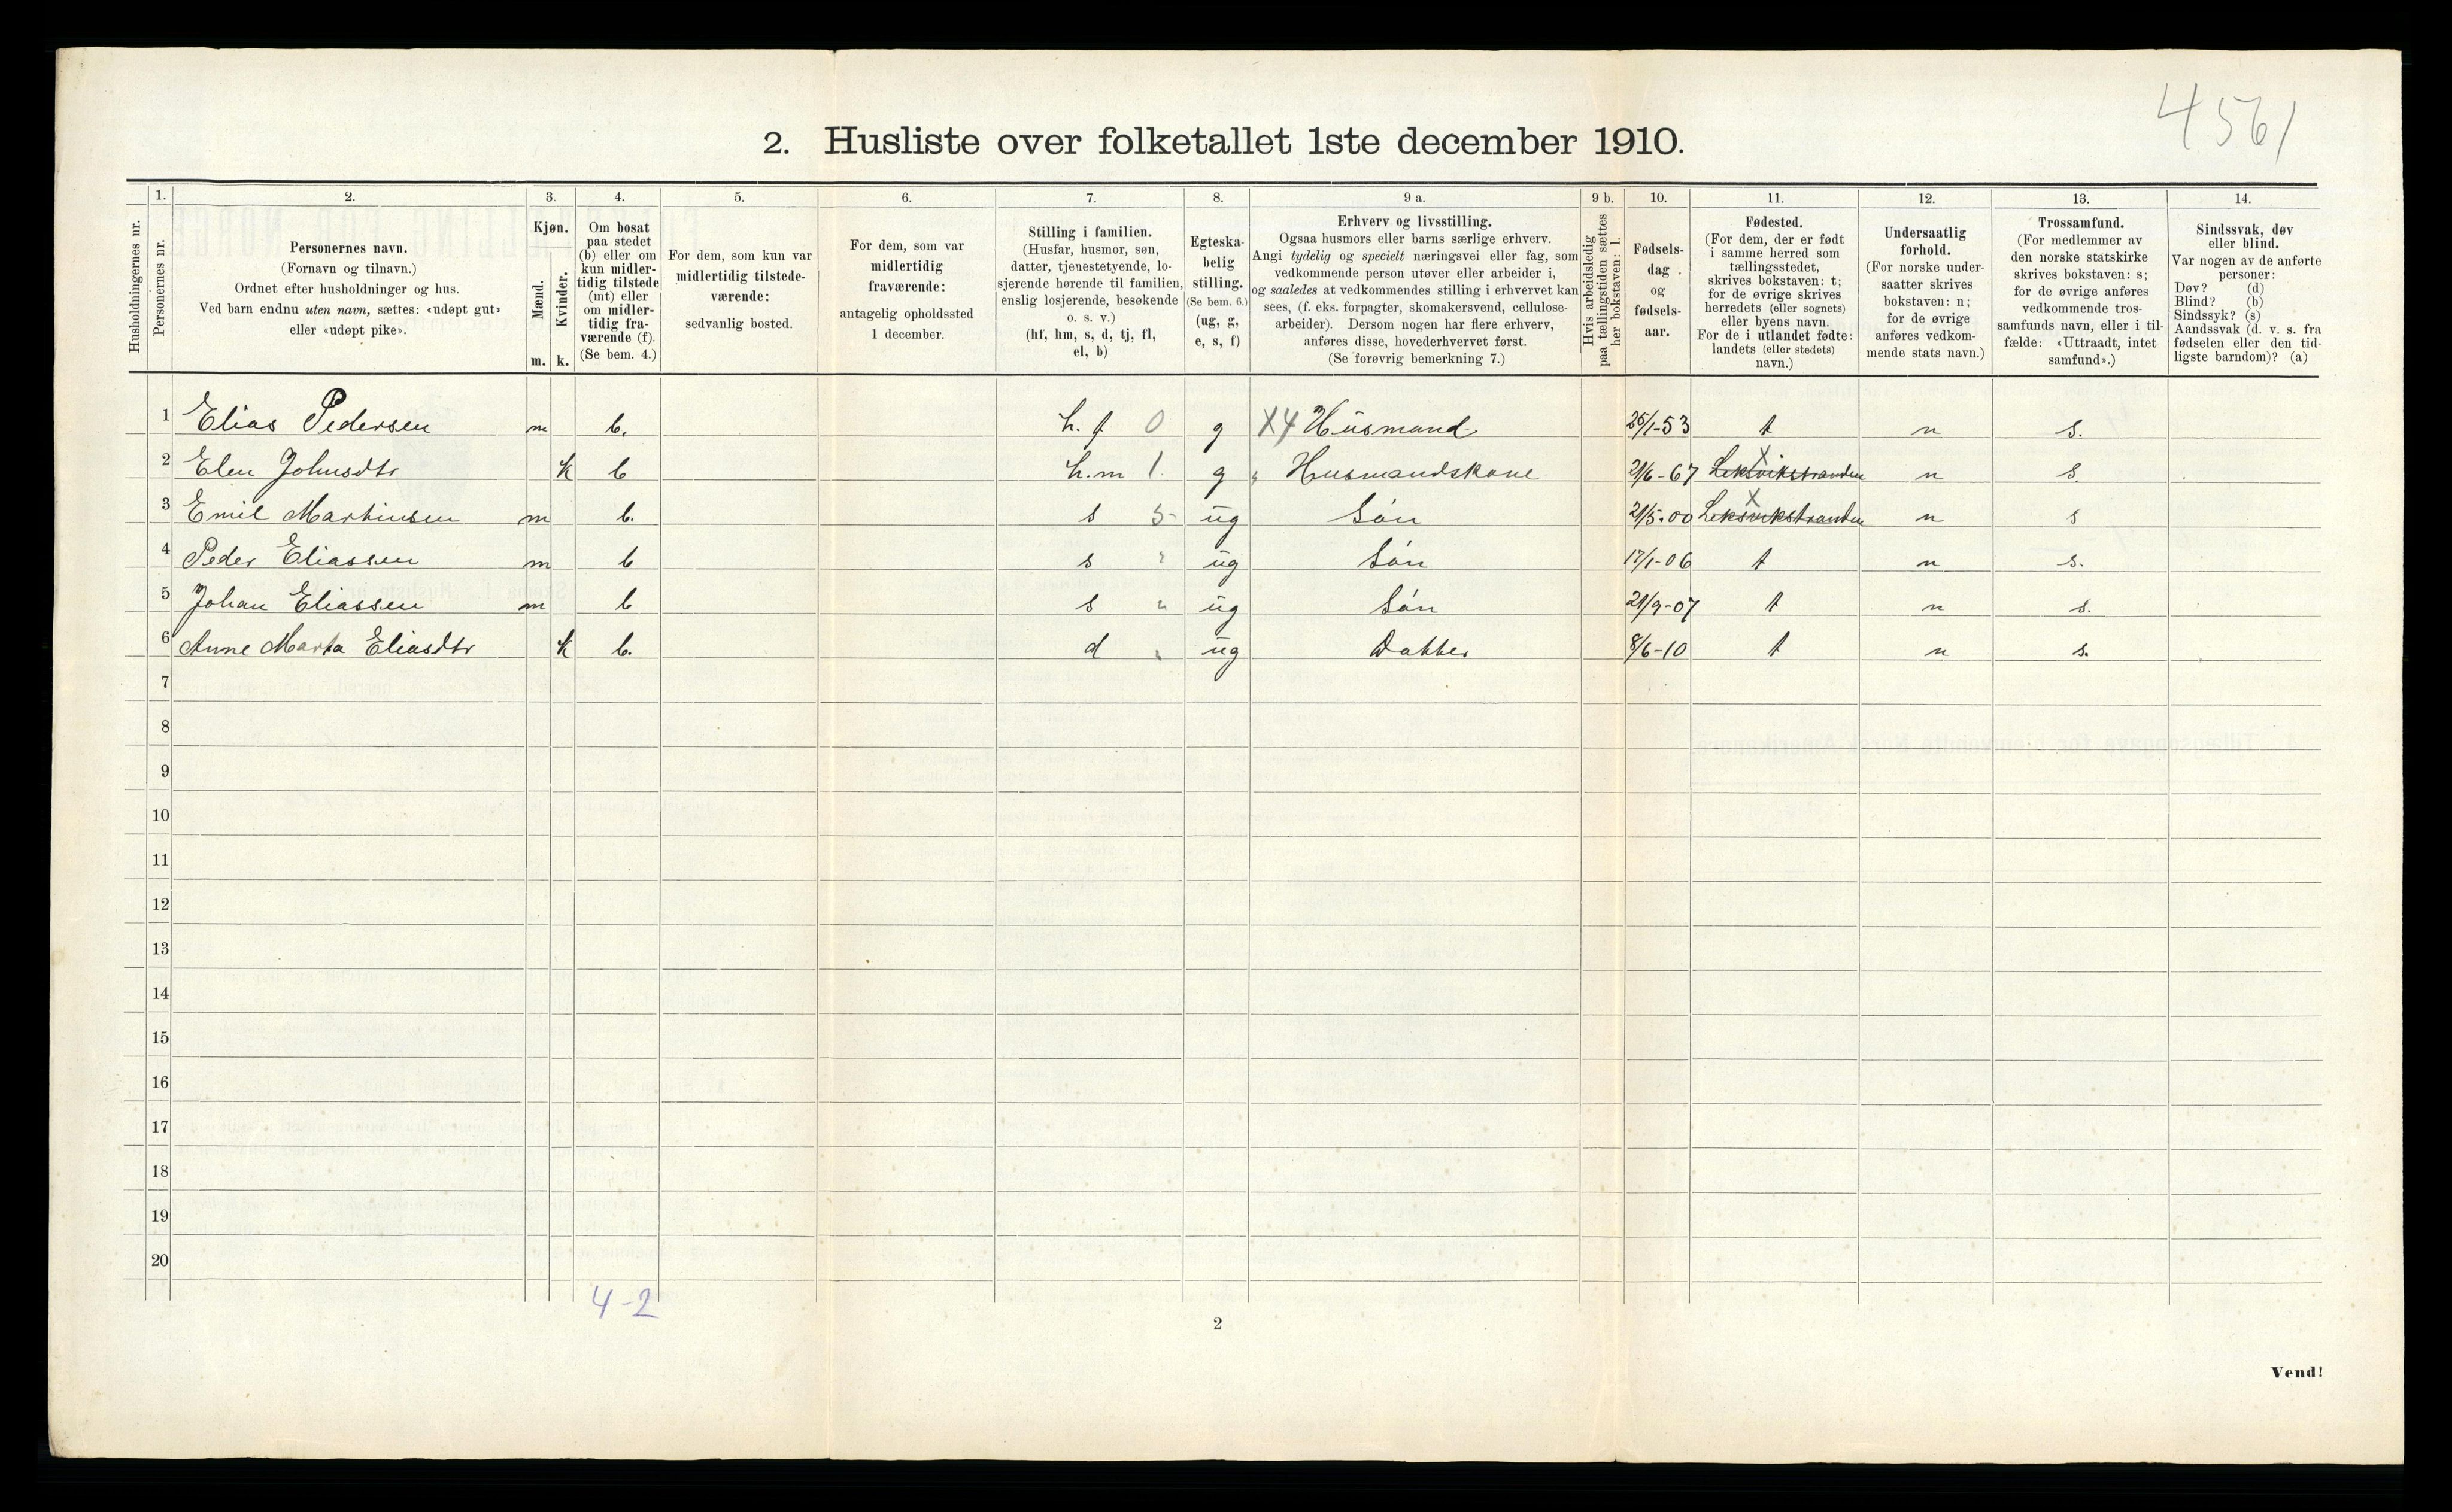 4561
2. Husliste over folketallet 1ste december 1910.
Husholdningernes nr.
1.
Personernes nr.
2.
Personernes navn.
(Fornavn og tilnavn.)
Ordnet efter husholdninger og hus.
Ved barn endnu uten navn, sættes: «udøpt gut»
eller «udøpt pike».
3.
Kjøn.
Mænd.
m.
Kvinder.
k.
4.
Om bosat
paa stedet
(b) eller om
kun midler-
tidig tilstede
(mt) eller
om midler-
tidig fra-
værende (f).
(Se bem. 4.)
5.
For dem, som kun var
midlertidig tilstede-
værende:
sedvanlig bosted.
6.
For dem, som var
midlertidig
fraværende:
antagelig opholdssted
1 december.
7.
Stilling i familien.
(Husfar, husmor, søn,
datter, tjenestetyende, lo-
sjerende hørende til familien,
enslig losjerende, besøkende
o. s. v.)
(hf, hm, s, d, tj, fl,
el, b)
8.
Egteska-
belig
stilling.
(Se bem. 6.)
(ug, g,
e, s, f)
9 a.
Erhverv og livsstilling.
Ogsaa husmors eller barns særlige erhverv.
Angi tydelig og specielt næringsvei eller fag, som
vedkommende person utøver eller arbeider i,
og saaledes at vedkommendes stilling i erhvervet kan
sees, (f. eks. forpagter, skomakersvend, cellulose-
arbeider). Dersom nogen har flere erhverv,
anføres disse, hovederhvervet først.
(Se forøvrig bemerkning 7.)
9 b.
Hvis arbeidsledig
paa tællingstiden sættes
her bokstaven: l.
10.
Fødsels-
dag
og
fødsels-
aar.
11.
Fødested.
(For dem, der er født
i samme herred som
tællingsstedet,
skrives bokstaven: t;
for de øvrige skrives
herredets (eller sognets)
eller byens navn.
For de i utlandet fødte:
landets (eller stedets)
navn.)
12.
Undersaatlig
forhold.
(For norske under-
saatter skrives
bokstaven: n;
for de øvrige
anføres vedkom-
mende stats navn.)
13.
Trossamfund.
(For medlemmer av
den norske statskirke
skrives bokstaven: s;
for de øvrige anføres
vedkommende tros-
samfunds navn, eller i til-
fælde: «Uttraadt, intet
samfund».)
14.
Sindssvak, døv
eller blind.
Var nogen av de anførte
personer:
Døv? (d)
Blind? (b)
Sindssyk? (s)
Aandssvak (d. v. s. fra
fødselen eller den tid-
ligste barndom)? (a)
1 Elias Pedersen m b. h. f 0 g X4 Husmand 26/1-53 t n s.
2 Elen Johnsdtr k b h.m 1. g " Husmandskone 21/6-67 Leksvikstranden X n s.
3 Emil Martinsen m b. s 5 ug Søn 21/5-00 Leksvikstranden X n s
4 Peder Eliassen m b s " ug Søn 17/1-06 t n s.
5 Johan Eliassen m b s " ug Søn 21/9-07 t n s.
6 Anne Marta Eliasdtr k b. d " ug Datter 8/6-10 t n s.
7
8
9
10
11
12
13
14
15
16
17
18
19
20
4-2
2
Vend!